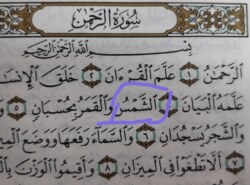 سُورَةُ الرَّحْمَٰن
بِسْمِ اللَّهِ الرَّحْمَٰنِ الرَّحِيمِ
الرَّحْمَٰنُ ١ عَلَّمَ الْقُرْءَانَ ٢ خَلَقَ الْإِنسَ
عَلَّمَهُ الْبَيَانَ ٤ الشَّمْسُ وَالْقَمَرُ بِحُسْبَانٍ ٥
وَالشَّجَرُ يَسْجُدَانِ ٦ وَالسَّمَآءَ رَفَعَهَا وَوَضَعَ الْمِي
٧ أَلَّا تَطْغَوْا فِي الْمِيزَانِ ٨ وَأَقِيمُوا الْوَزْنَ